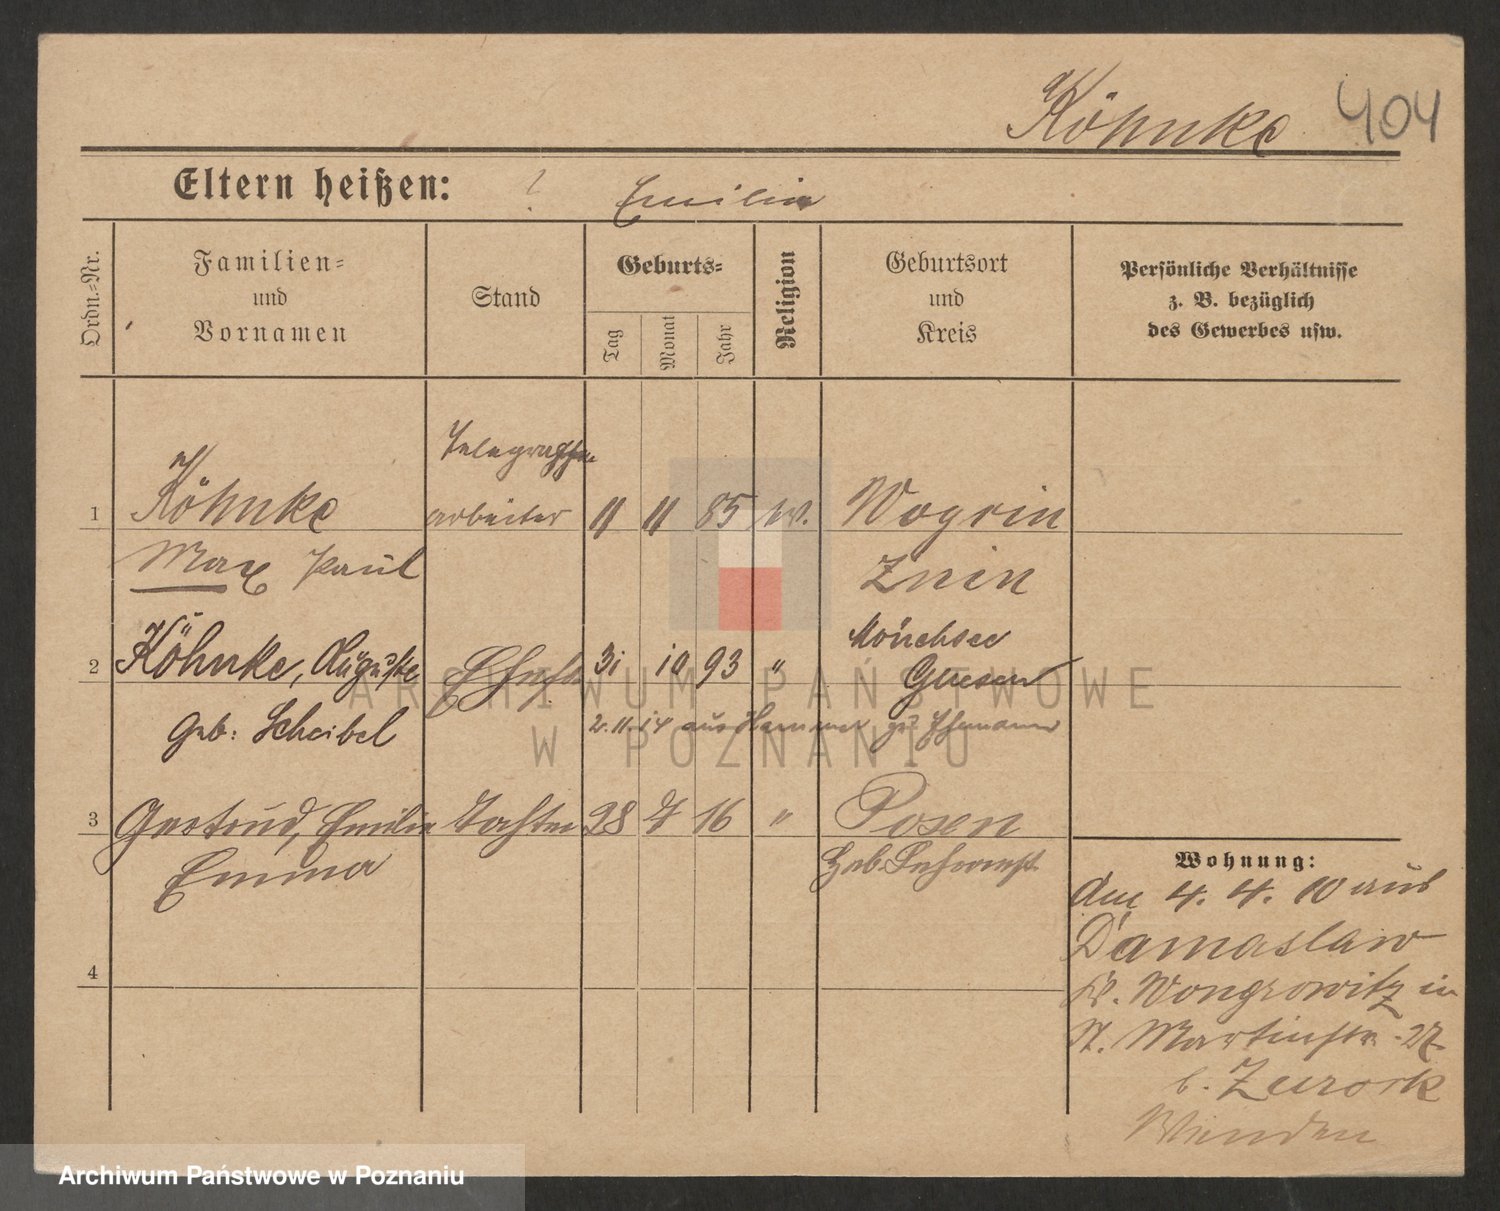 Köhnke 404
Eltern heißen: ? Emilie
Ordn.-Nr.
Familien-
und
Vornamen
Stand
Geburts-
Tag
Monat
Jahr
Religion
Geburtsort
und
Kreis
Persönliche Verhältnisse
z. B. bezüglich
des Gewerbes usw.
Telegraphen
1 Köhnke arbeiter 11 11 85 ev. Wogrin
Max Paul Znin
Mönchsee
2 Köhnke, Auguste Ehefr. 31 10 93 " Gnesen
geb: Scheibel
2.11.14 aus Hammer zu Ehemann
3 Gertrud, Emilie Tochter 28 7 16 " Posen
Emma
Heb. Lehranst.
4
Wohnung:
den 4. 4. 10 aus
Damaslaw
Kr. Wongrowitz in
St. Martinstr. 27
b. Zurock
ARCHIWUM PAŃSTWOWE
W POZNANIU
Archiwum Państwowe w Poznaniu